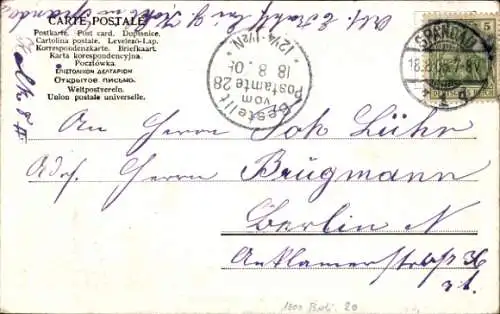 CARTE POSTALE
Postkarte. Post card. Dopisnice.
Cartolina postale. Levelező-Lap.
Korrespondenzkarte. Briefkaart.
Karta korespondencyjna.
Pocztówka.
ΕΠΙΣΤΟΛΙΚΟΝ ΔΕΛΤΑΡΙΟΝ
Открытое письмо.
Weltpostverein.
Union postale universelle.
Bestellt
vom
Postamte 28
18.8.05
12¼-1½N
SPANDAU
18.8.05 7-8V
5
An Herrn Joh Lühr
Adr. Herrn Brügmann
Berlin N
Anklamerstr 36